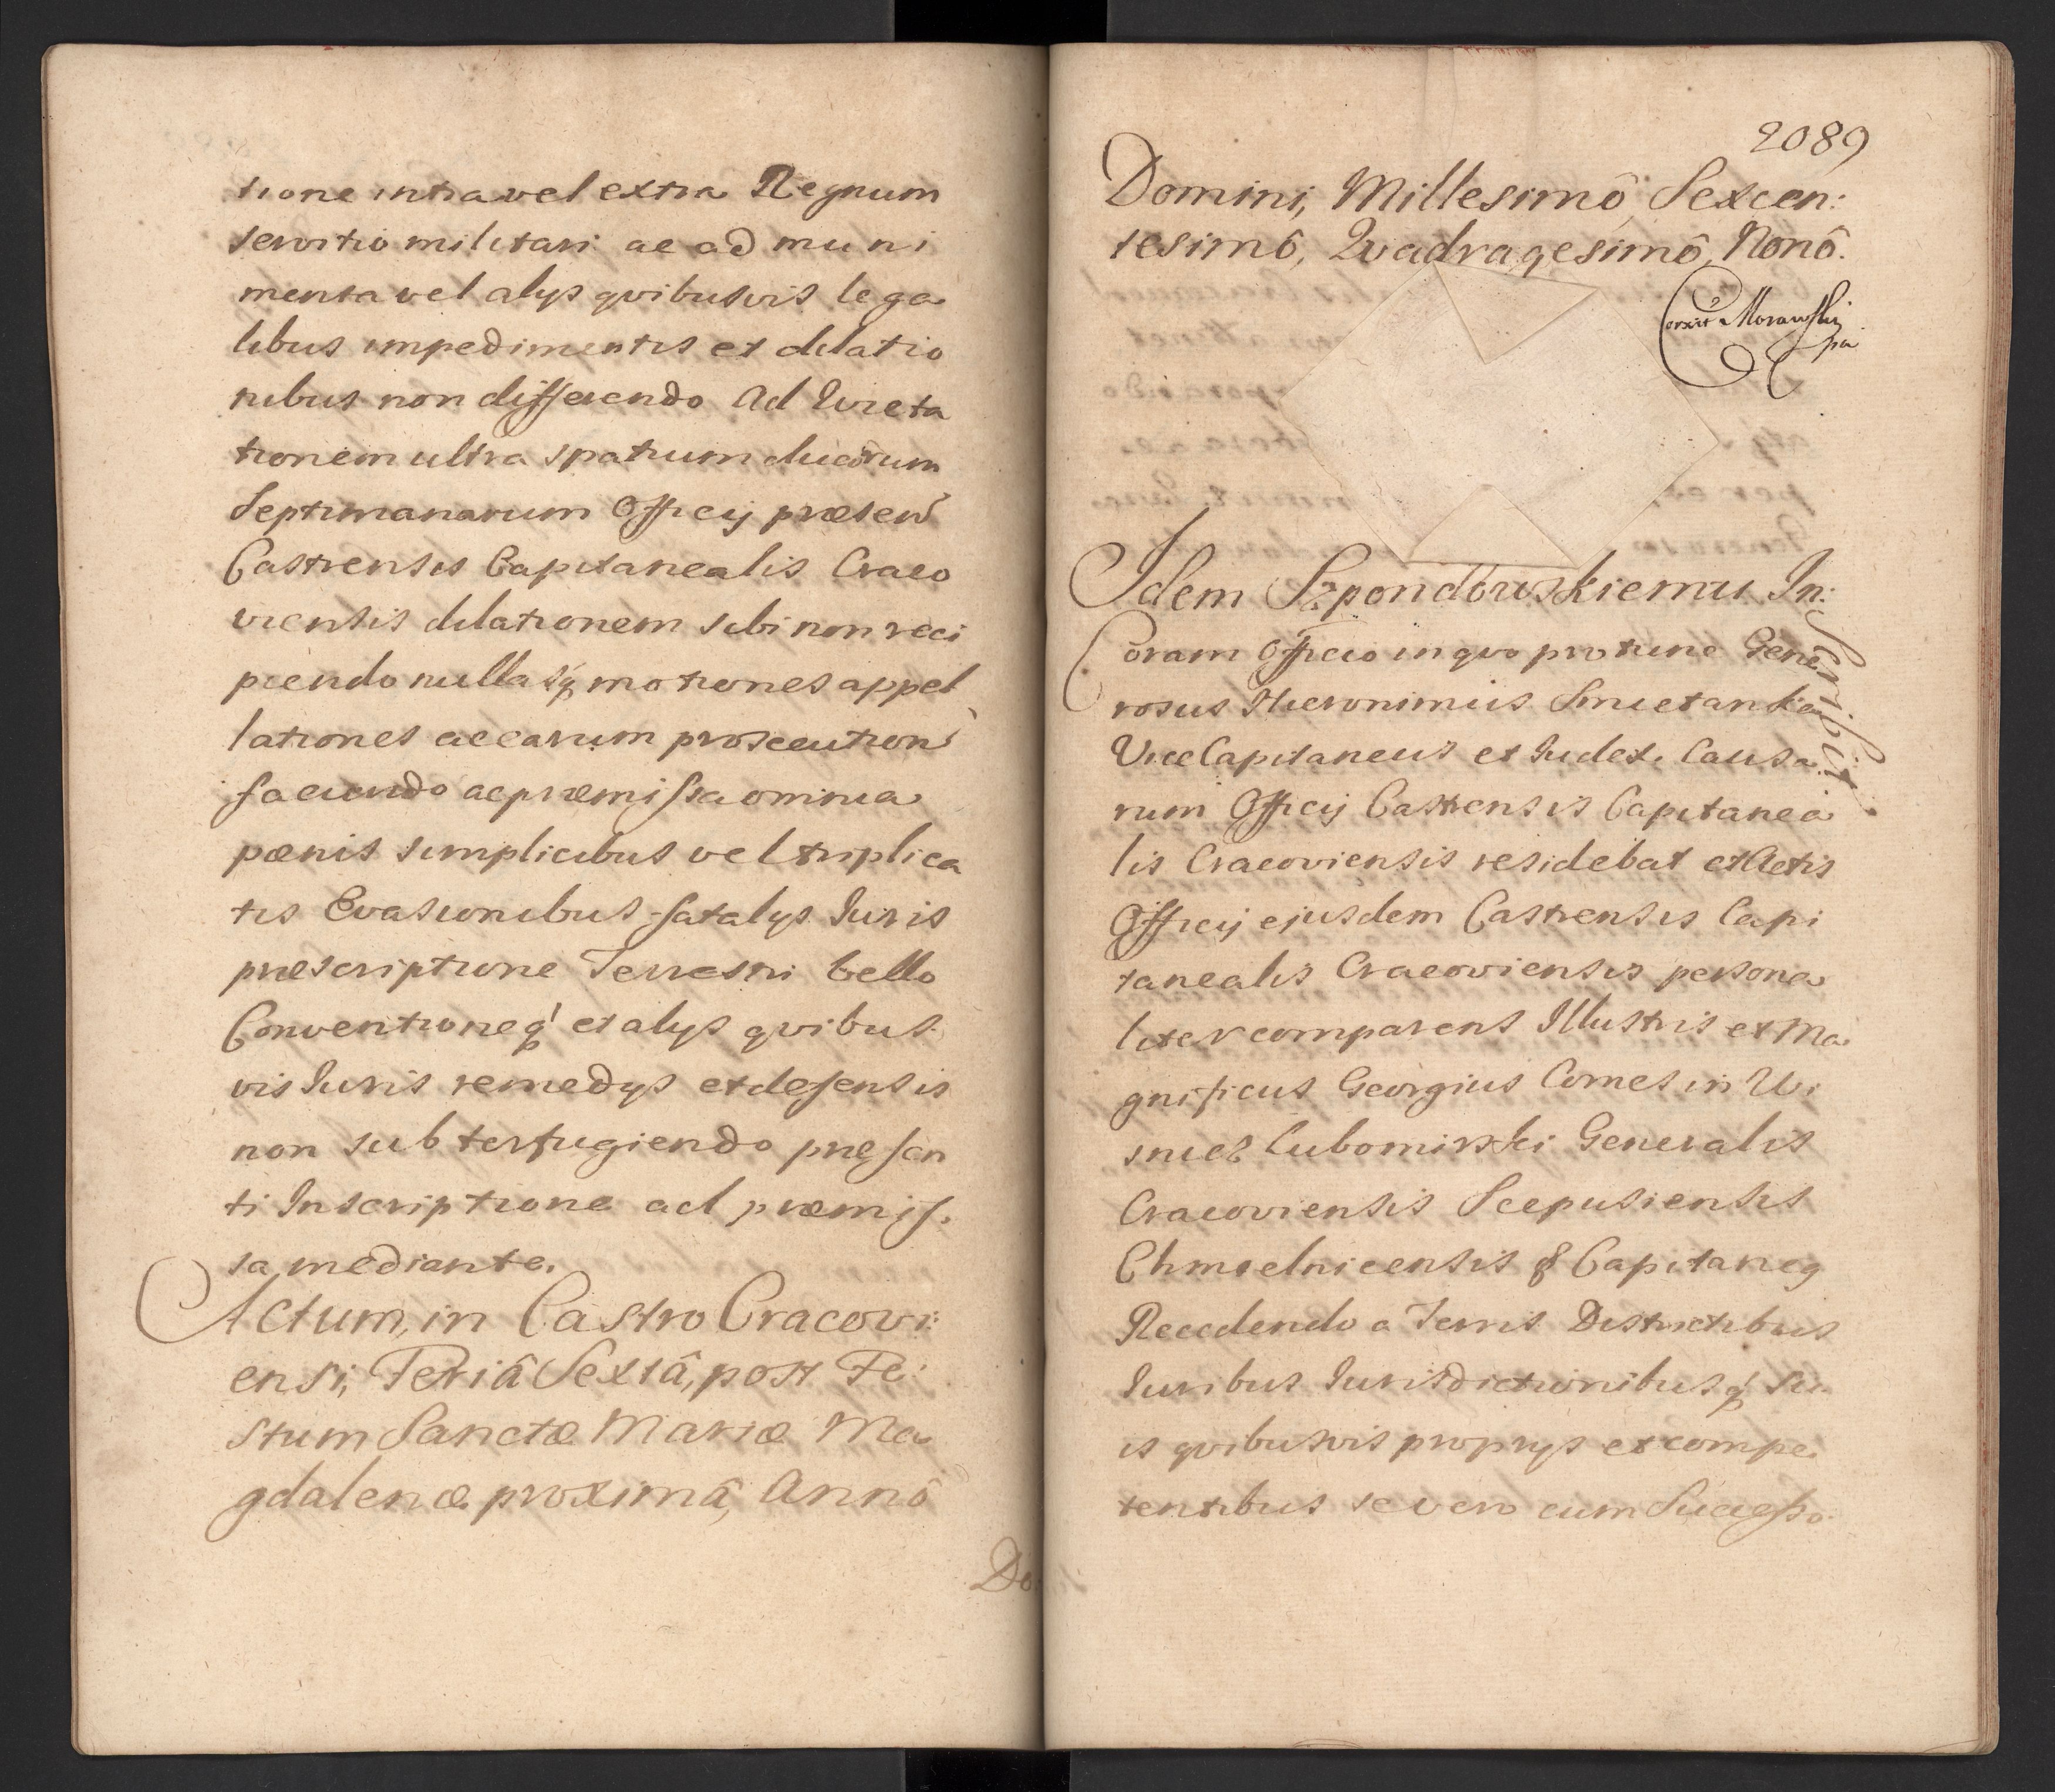 tione intra vel extra Regnum
servitio militari ac ad muni
menta vel alys qvibusvis lega
libus impedimentis et dilatio
nibus non differendo ad Luita
tionem ultra spatium duarum
Septimanarum Officij præsen
Castrensis Capitanealis Craco
viensis dilationem sibi non reci
piendo nullasq motiones appel
lationes ac earum prosecution
faciendo ac præmissa omnia
pænis simplicibus vel triplica
tis Evasionibus fatalys Iuris
præscriptione Terrestri bello
Conventioneq et alys qvibus
vis Iuris remedys et defensis
non subterfugiendo præsen
ti Inscriptione ad præmis
sa mediante.
Actum, in Castro Cracovi:
ensi, Feriâ Sextâ, post Fe:
stum Sanctæ Mariæ Ma
gdalenæ proximâ, Annô
Do
2089
Domini, Millesimô Sexcen:
tesimô, Qvadragesimô, Nonô.
Correxit Morawski
pa
Idem Szpondowskiemu In:
scribit
Coram Officio in qvo protunc Gene
rosus Hieronimus Smietanka
Vice Capitaneus et Iudex Causa
rum Officij Castrensis Capitanea
lis Cracoviensis residebat et Actis
Officij ejusdem Castrensis Capi
tanealis Cracoviensis persona
liter comparens Illustris et Ma
gnificus Georgius Comes in Wi
snicz Lubomirski Generalis
Cracoviensis Scepusiensis
Chmielnicensis & Capitaneg
Recedendo a Terris Districtibus
Iuribus Iurisdictionibusq su
is qvibusvis proprys et compe
tentibus se vero cum Successo